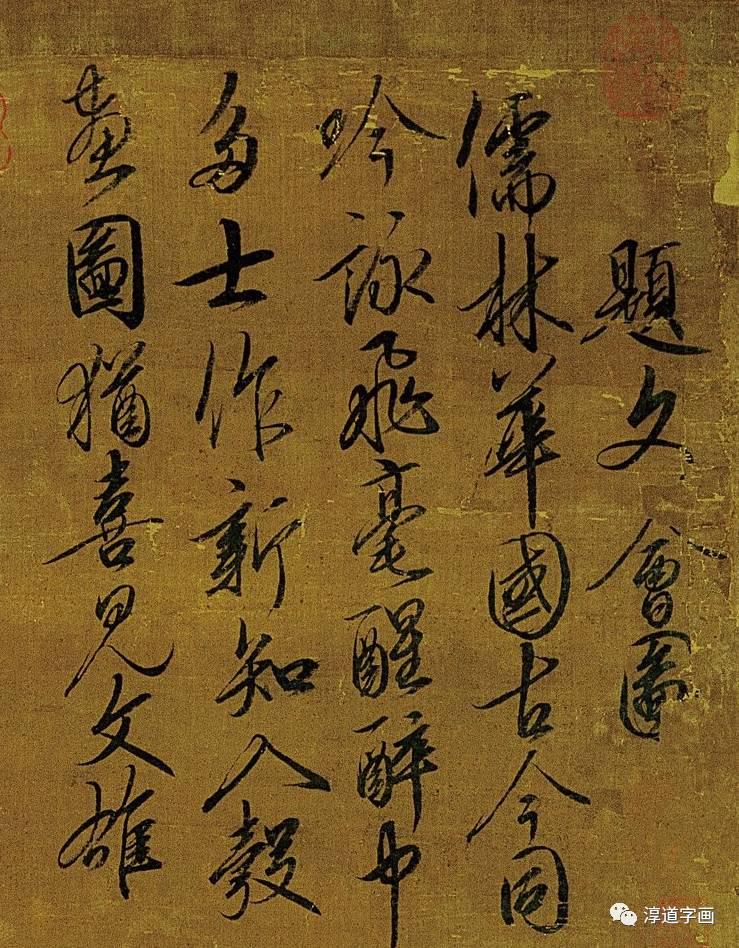 題文會圖
儒林華國古今同
吟詠飛毫醒醉中
多士作新知入彀
畫圖猶喜見文雄
淳道字画